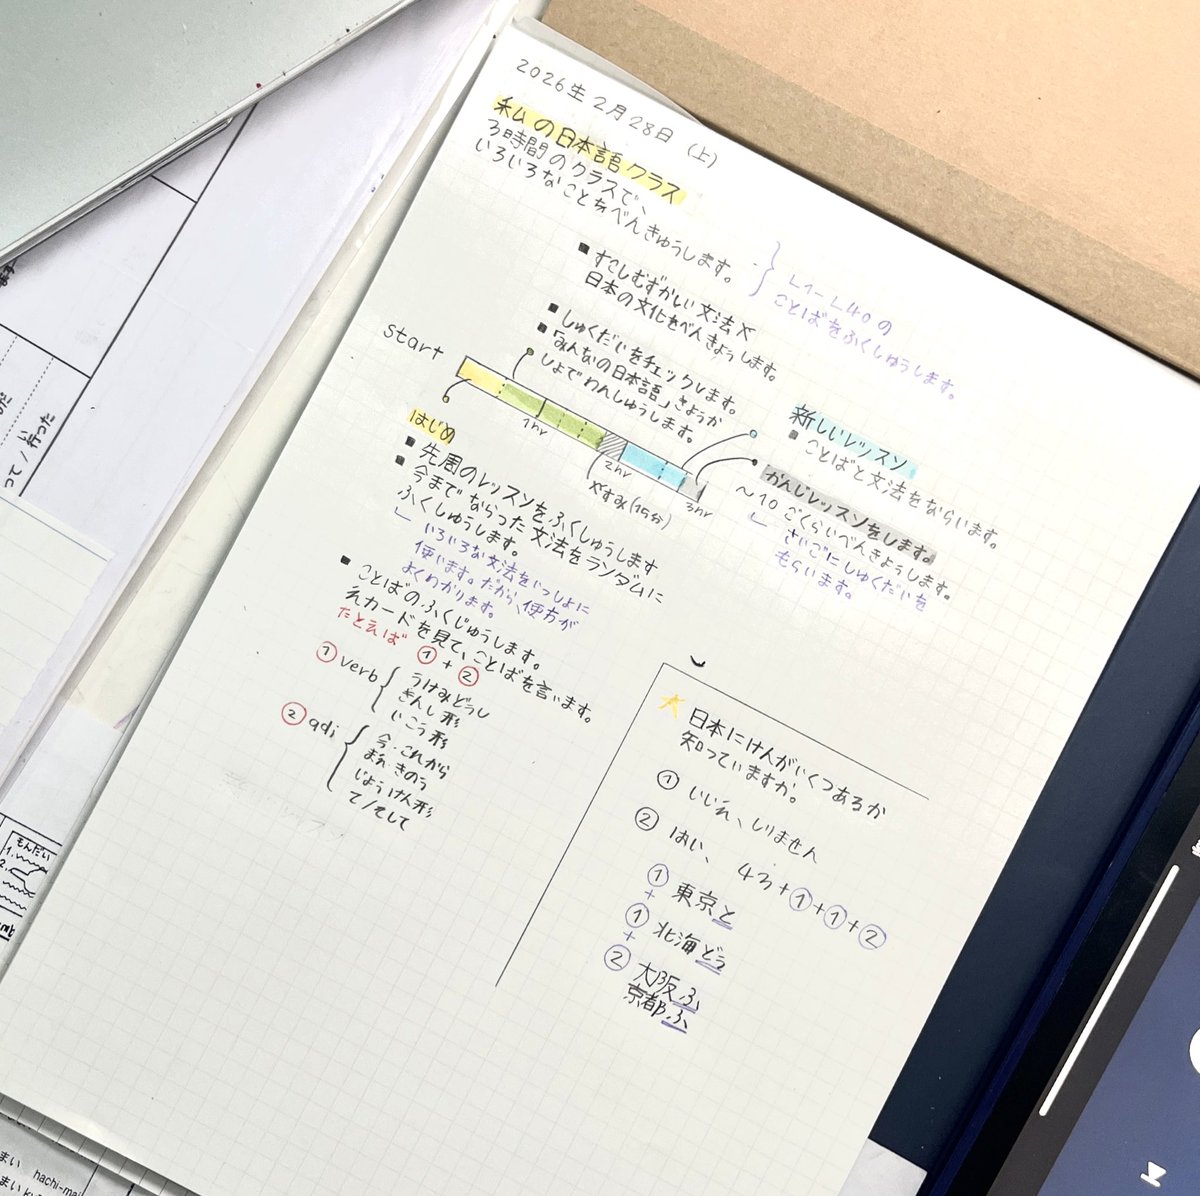 2026年 2月 28日 (土)
私の日本語クラス
3時間のクラスで、
いろいろなことをべんきゅうします。
L1-L40の
ことばをふくしゅうします。
■ すこしむずかしい文法や
日本の文化をべんきょうします。
■ しゅくだいをチェックします。
■「みんなの日本語」きょうか
しょでれんしゅうします。
start
1hr
2hr
3hr
やすみ(15分)
はじめ
■ 先周のレッスンをふくしゅうします
■ 今までならった文法をランダムに
ふくしゅうします。
いろいろな文法をいっしょに
使います。だから、使方が
よくわかります。
■ ことばのふくじゅうします。
えカードを見て、ことばを言います。
たとえば ① + ②
① verb
うけみどうし
きんし形
いこう形
② adj
今・これから
まえ・きのう
じょうけん形
て/そして
新しいレッスン
■ ことばと文法をならいます。
かんじレッスンをします。
〜10こくらいべんきょうします。
さいごにしゅくだいを
もらいます。
日本にけんがいくつあるか
知っていますか。
① いいえ、しりません
② はい、 43+①+①+②
① 東京と
+
① 北海どう
+
② 大阪ふ
京都ふ
って / 行った
もんだい
1.
2.
まい hachi-mai